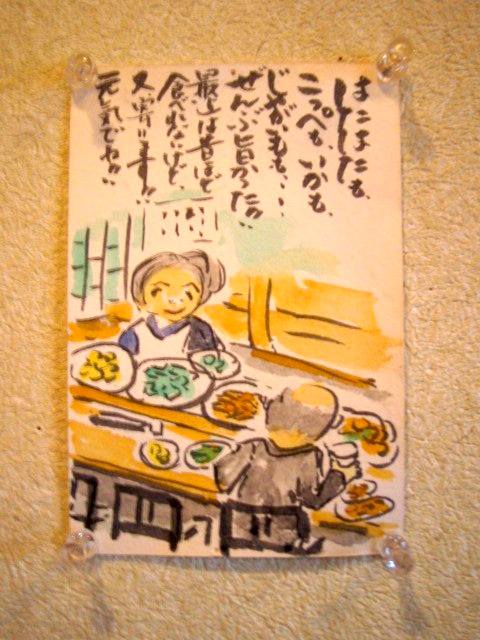 はたはたも、
こっぺも、いかも、
じゃがいもも、、、
ぜんぶ旨かった!!
最近は昔ほど
食べれないけど、
又寄ります!!
元気でね!!